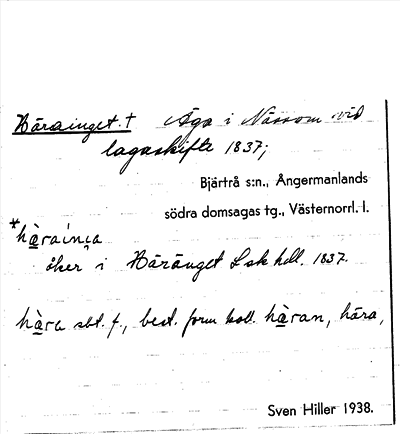 Härainget. † Äga i Nässom vid
lagaskifte 1837;
Bjärtrå s:n., Ångermanlands
södra domsagas tg., Västernorrl. l.
*hä̀raíŋa
åker i Häränget Lsk hdl. 1837.
hä̀ra sbt. f., best. form koll. hä̀ran, hära,
Sven Hiller 1938.